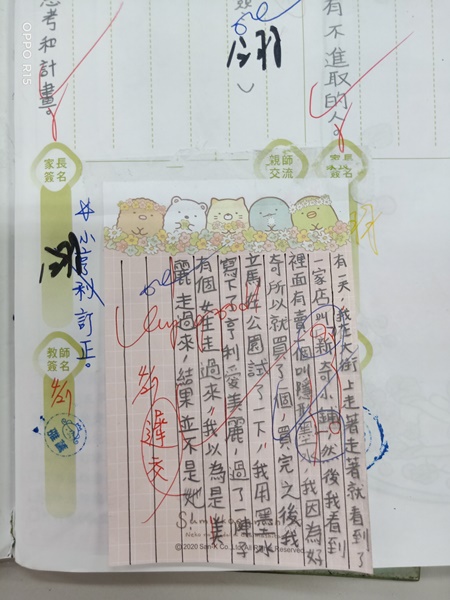 有不進取的人。
思考和計畫。
家長
簽名
親師
交流
家長
簽名
小亨利訂正。
教師
簽名
4/21
有一天,我在大街上走著走著就看到了
一家店叫新奇小舖,然後我看到
裡面有賣一個叫隱形墨,我因為好
奇所以就買一個,買完之後我
立馬在公園試了一下,我用墨水
寫下了亨利愛美麗,過了一陣子
有個女生走過來,我以為是美
麗走過來,結果並不是她!
Very good
遲交
©2020 San-X Co., Ltd. All Rights Reserved.
OPPO R15